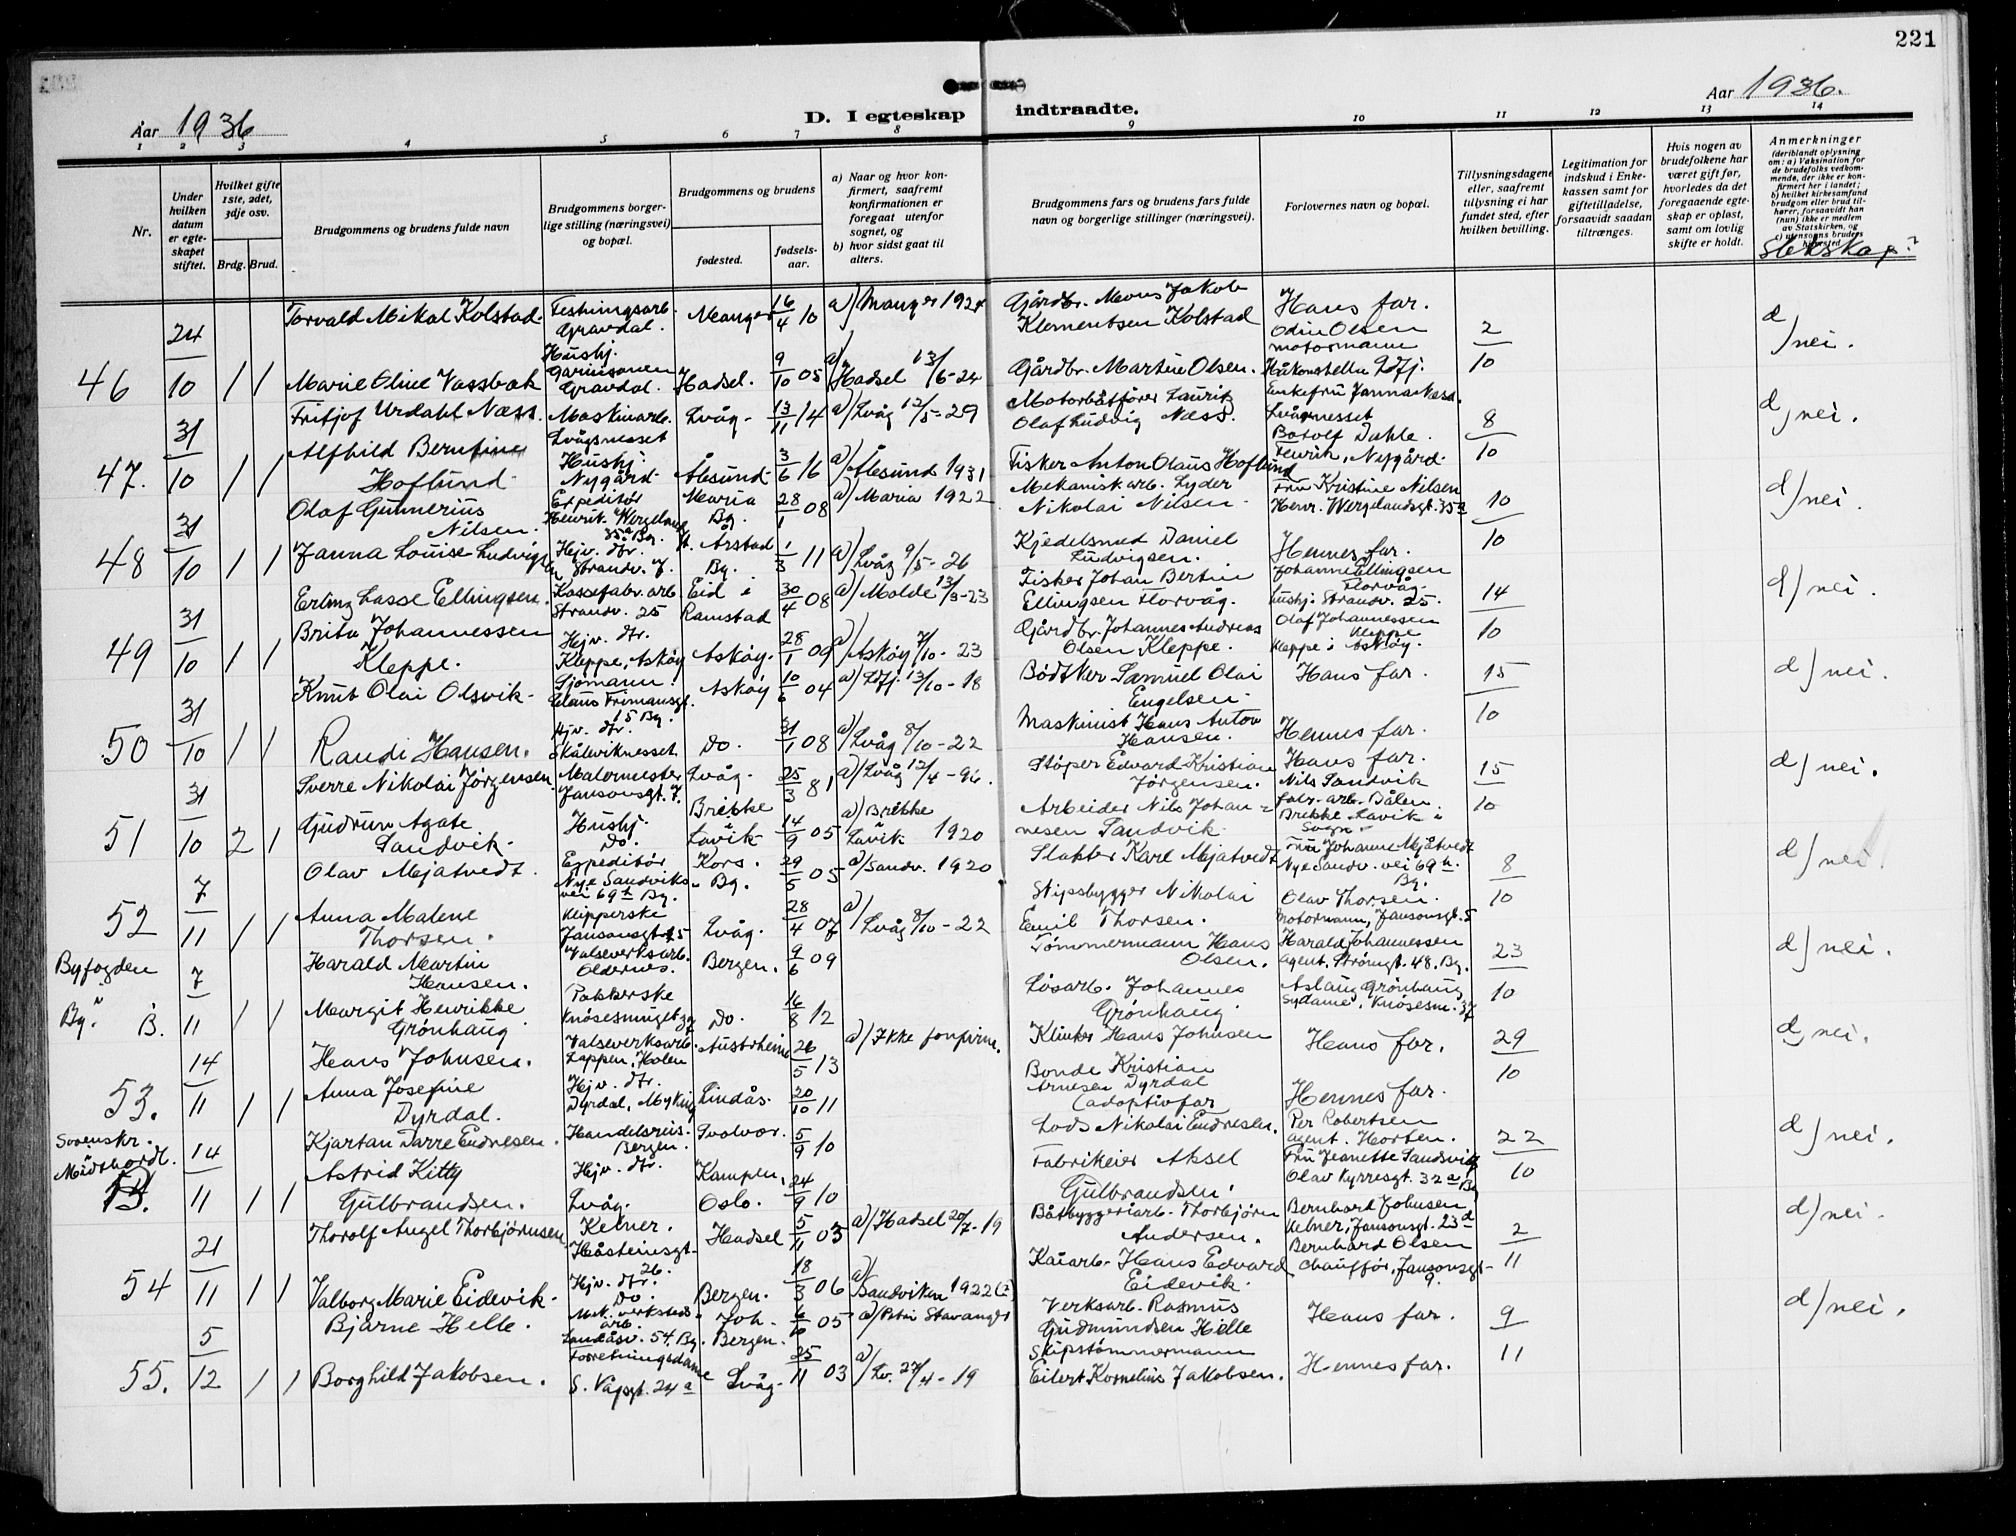 221
Aar 1936
D. I egteskap indtraadte.
Aar 1936.
1 2 3 4 5 6 7 8 9 10 11 12 13 14
Nr.
Under hvilken datum er egteskapet stiftet.
Hvilket gifte 1ste, 2det, 3dje osv.
Brdg. Brud.
Brudgommens og brudens fulde navn
Brudgommens borgerlige stilling (næringsvei) og bopæl.
Brudgommens og brudens
fødested.
fødselsaar.
a) Naar og hvor konfirmert, saafremt konfirmationen er foregaat utenfor sognet, og
b) hvor sidst gaat til alters.
Brudgommens fars og brudens fars fulde navn og borgerlige stillinger (næringsvei).
Forlovernes navn og bopæl.
Tillysningsdagene eller, saafremt tillysning ei har fundet sted, efter hvilken bevilling.
Legitimation for indskud i Enkekassen samt for giftetilladelse, forsaavidt saadan tiltrænges.
Hvis nogen av brudefolkene har været gift før, hvorledes da det foregaaende egteskap er opløst, samt om lovlig skifte er holdt.
Anmerkninger
(deriblandt oplysning om: a) Vaksination for de brudefolks vedkommende, der ikke er konfirmert her i landet; b) hvilket kirkesamfund brudgom eller brud tilhører, forsaavidt han (hun) ikke er medlem av Statskirken, og c) utensogns brudens hjemsted.
Slektskap?
46 24/10 1 1
Torvald Mikal Kolstad. Festningsarb. Gravdal. Manger 16/4 10 a) Manger 1924 Gårdbr. Mons Jakob Klementsen Kolstad Hans far. Odin Olsen motormann 2/10 d) nei.
Marie Oline Vassbak Hushj. Garnisonen Gravdal. Hadsel. 9/10 05 a) Hadsel 13/6-24 Gårdbr. Martin Olsen. Håkonshella Ldfj.
47. 31/10 1 1
Fritjof Urdahl Næss. Maskinarb. Lvågsnesset Lvåg. 13/11 14 a) Lvåg 12/5-29 Motorbåtfører Lauritz Olaf Ludvig Næss. Enkefru Janna Næss. Lvågsnesset 8/10 d) nei.
Alfhild Berntine Hoflund Hushj. Nygård. Ålesund 3/6 16 a) Ålesund 1931 Fisker Anton Olaus Hoflund Botolf Dahle. Nygård.
48 31/10 1 1
Olaf Gunnerius Nilsen. Expeditør Henrik Wergelandsgt. 35a Bg. Maria Bg. 28/1 08 a) Maria 1922 Mekanisk arb. Lyder Nikolai Nilsen Fru Kristine Nilsen Henr. Wergelandsgt. 35a 10/10 d) nei.
Janna Louise Ludvigsen Hjv. dtr. Strandv. 7. Årstad Bg. 1/3 11 a) Lvåg 9/5-26 Kjedelsmed Daniel Ludvigsen. Hennes far.
49 31/10 1 1
Erling Lasse Ellingsen. Kassefabr. arb. Strandv. 25 Eid i Ramstad 30/4 08 a) Molde 13/3-23 Fisker Johan Bertin Ellingsen Florvåg. Johanne Ellingsen Florvåg hushj. Strandv. 25. 14/10 d) nei.
Brita Johannessen Kleppe. Hjv. dtr. Kleppe, Askøy Askøy. 28/1 09 a) Askøy 7/10-23 Gårdbr. Johannes Andreas Olsen Kleppe. Olaf Johannessen Kleppe Kleppe i Askøy.
50 31/10 1 1
Knut Olai Olsvik. Sjømann. Claus Frimansgt. 15 Bg. Askøy 10/6 04 a) Ldfj. 13/10-18 Bødtker Samuel Olai Engelsen Hans far. 15/10 d) nei.
Randi Hansen. Hjv. dtr. Skålviknesset Do. 31/1 08 a) Lvåg 8/10-22 Maskinist Hans Anton Hansen. Hennes far.
51 31/10 2 1
Sverre Nikolai Jørgensen Malermester Jansonsgt. 7. Lvåg. 25/3 81 a) Lvåg 12/4-96. Støper Edvard Kristian Jørgensen. Hans far. 15/10 d) nei.
Gudrun Agate Sandvik. Hushj. Do. Brekke i Lavik 14/9 05 a) Brekke Lavik 1920 Arbeider Nils Johannesen Sandvik. Nils Sandvik fabr. arb. Dålen. Brekke Lavik i Sogn
52 7/11 1 1
Olav Mjatvedt. Expeditør Nye Sandviksvei 69a Bg. Kors. Bg. 29/5 05 a) Sandv. 1920 Slakter Karl Mjatvedt Fru Johanne Mjåtvedt Nye Sandv. vei 69a Bg. 8/10 d) nei.
Anna Malene Thorsen. Klipperske Jansonsgt. 15 Lvåg. 28/4 07 a) Lvåg 8/10-22 Skipsbygger Nikolai Emil Thorsen. Olav Thorsen. Motormann, Jansonsgt. 5
Byfogden Bg. B. 7/11 1 1
Harald Martin Hansen. Valseverksarb. Oldernes. Bergen. 9/6 09 Tømmermann Hans Olsen. Harald Johannessen agent. Strømgt. 48. Bg. 23/10 d) nei.
Margit Henrikke Grønhaug Pakkerske Knøsesmuget 37 Do. 16/8 12 Løsarb. Johannes Grønhaug Aslaug Grønhaug Sydame, Knøsesm. 37
53. 14/11 1 1
Hans Johnsen. Valseverksarb. Lappen, Holen Austrheim 26/5 13 a) Ikke konfirm. Klinker Hans Johnsen Hans far. 29/10 d) nei.
Anna Josefine Dyrdal. Hjv. dtr. Dyrdal, Myking Lindås. 20/10 11 Bonde Kristian Arnesen Dyrdal (adoptivfar Hennes far.
Sorenskr. Midthordl. B. 14/11 1 1
Kjartan Darre Endresen. Handelsreis. Bergen. Svolvær. 5/9 10 Lods Nikolai Endresen. Per Robertsen agent. Horten. 22/10 d) nei.
Astrid Kitty Gulbrandsen. Hjv. dtr. Lvåg. Kampen, Oslo. 24/9 10 Fabrikeier Aksel Gulbrandsen. Fru Jeanette Sandsvig Olav Kyrresgt. 32a Bg
54 21/11 1 1
Thorolf Angel Thorbjørnsen Kelner. Håsteinsgt. 26. Hadsel 5/11 03 a) Hadsel 20/7-19 Båtbyggeriarb. Thorbjørn Andersen. Bernhard Johnsen Kelner, Jansonsgt. 23d 2/11 d) nei.
Valborg Marie Eidevik. Hjv. dtr. Do. Bergen. 18/3 06 a) Sandviken 1922 (?) Kaiarb. Hans Edvard Eidevik. Bernhard Olsen chauffør, Jansonsgt. 9.
55. 5/12 1 1
Bjarne Helle. Mek. verksteds arb. Landåsv. 54. Bg. Joh. Bergen. 6/6 05 a) Petri Stavanger Verksarb. Rasmus Gudmundsen Helle Hans far. 9/11 d) nei.
Borghild Jakobsen. Forretningsdame S. Vågsgt. 24a Lvåg. 25/11 03 a) Lv. 27/4-19 Skipstømmermann Eilert Kornelius Jakobsen. Hennes far.